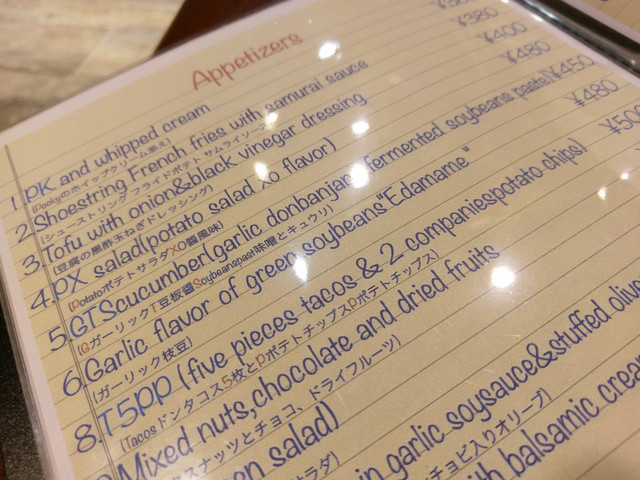 Appetizers
¥380
¥380
1. PK and whipped cream ¥400
(Pockyのホイップクリーム添え)
2. Shoestring French fries with samurai sauce ¥480
(シューストリング フライドポテト サムライソース)
3. Tofu with onion&black vinegar dressing
(豆腐の黒酢玉ねぎドレッシング)
4. PX salad(potato salad XO flavor)
(PotatoポテトサラダXO醤風味)
5. GTScucumber(garlic donbanjang fermented soybeans paste) ¥450
(GガーリックT豆板醤Soybeanspast味噌とキュウリ)
6. Garlic flavor of green soybeans"Edamame" ¥480
(ガーリック枝豆)
8. T5pp (five pieces tacos & 2 companiespotato chips) ¥500
(Tacosドンタコス5枚とPポテトチップスPポテトチップス)
Mixed nuts,chocolate and dried fruits
スナッツとチョコ、ドライフルーツ)
en salad)
サラダ)
in garlic soysauce&stuffed olive
チョビ入りオリーブ)
with balsamic crea